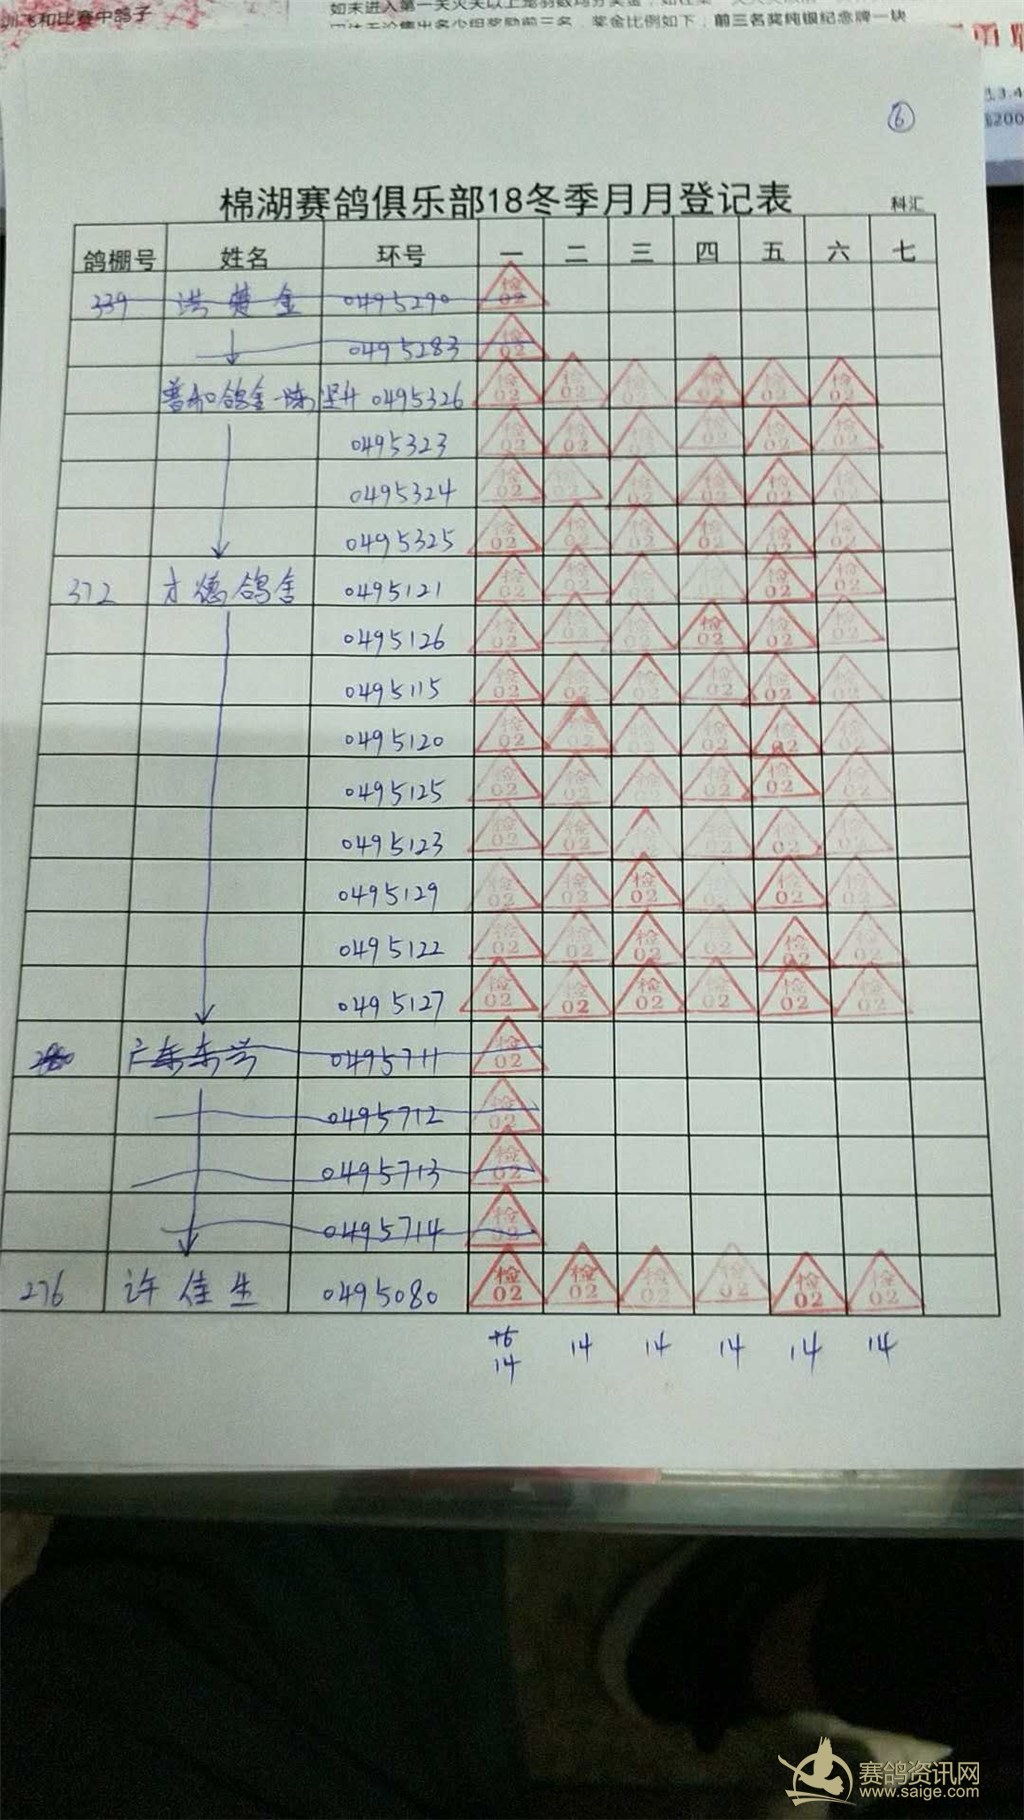 训飞和比赛中鸽子
奖金比例如下，前三名奖纯银纪念牌一块
⑥
棉湖赛鸽俱乐部18冬季月月登记表 科汇
鸽棚号 姓名 环号 一 二 三 四 五 六 七
339 金 0495290 检02
0495283 检02
普和鸽舍 0495326 检02 检02 检02 检02 检02 检02
0495323 检02 检02 检02 检02 检02 检02
0495324 检02 02 检02 检02 检02 检02
0495325 检02 检02 检02 检02 检02 检02
372 才德鸽舍 0495121 检02 检02 检02 检02 检02
0495126 检02 检02 检02 检02 检02 检02
0495115 检02 检02 检02 检02 检02 检02
0495120 检02 检02 检02 检02 检02 检02
0495125 检02 检02 检02 检02 检02 检02
0495123 检02 检02 检02 检02 检02 检02
0495129 检02 检02 检02 检02 检02 检02
0495122 检02 检02 检02 检02 检02 检02
0495127 检02 检02 检02 检02 检02 检02
0495711 检02
0495712 检02
0495713 检02
0495714 检02
276 许佳生 0495080 检02 检02 检02 检02 检02 检02
14 14 14 14 14 14
赛鸽资讯网
www.saige.com